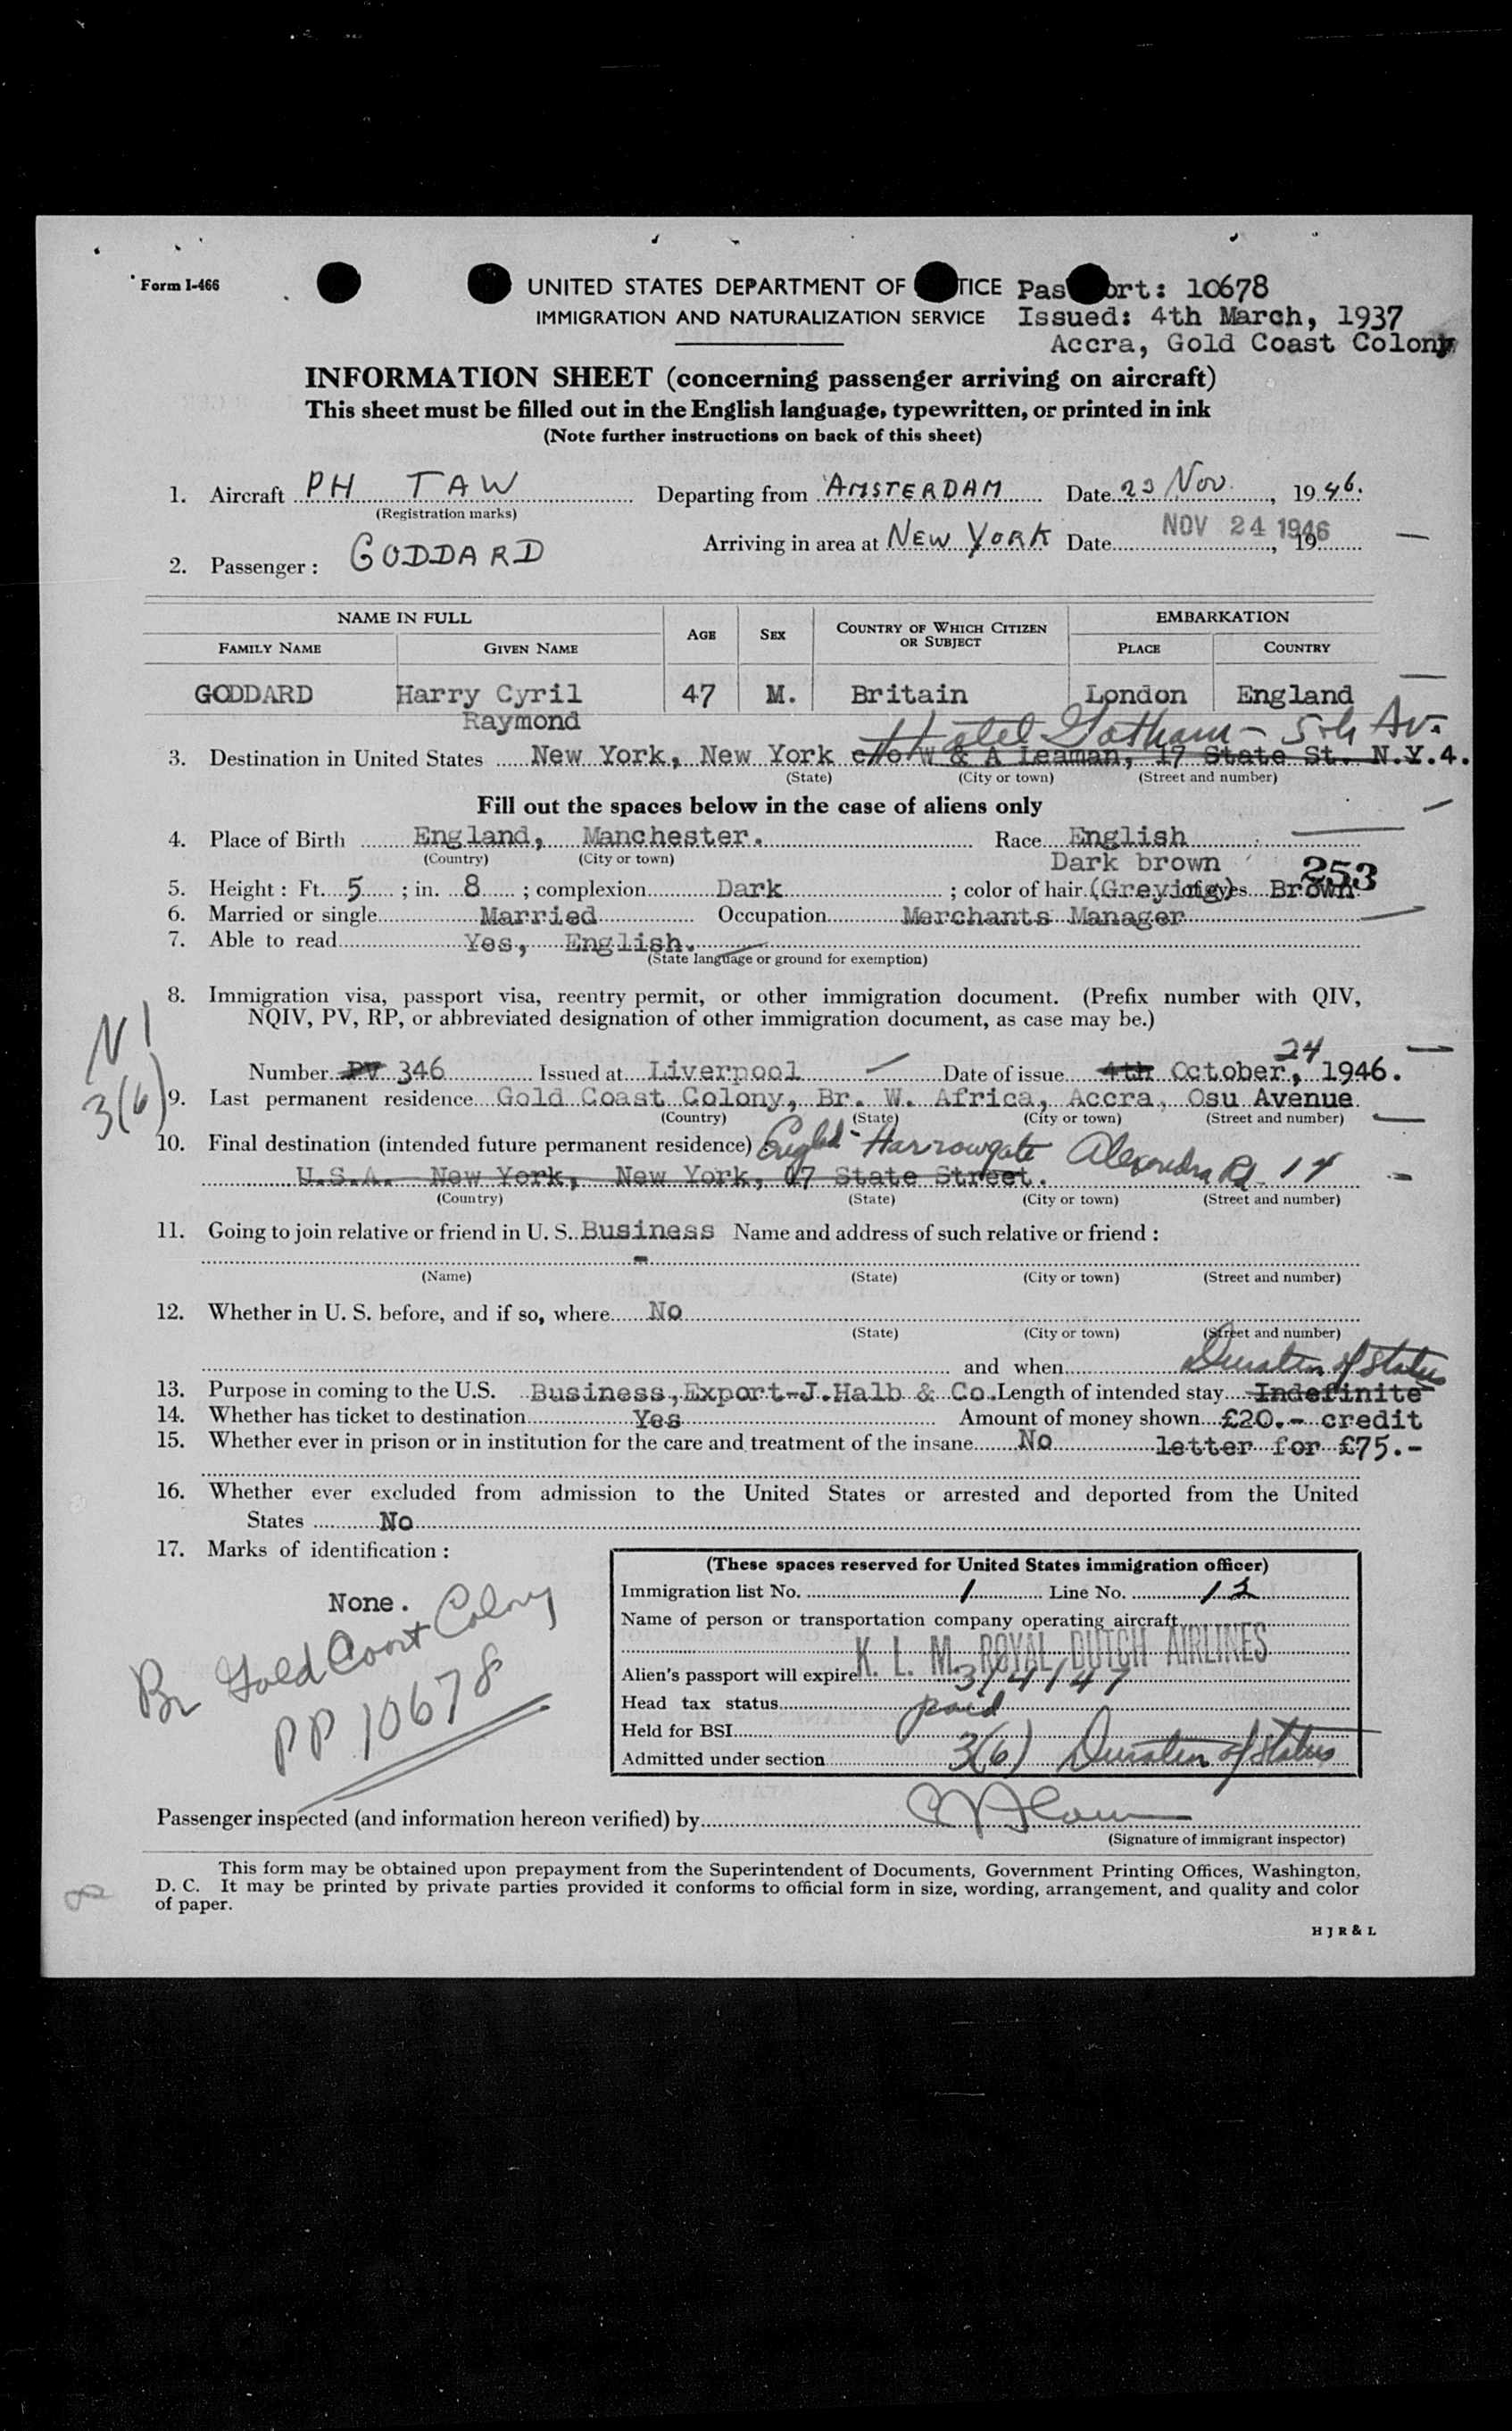 Form I-466
UNITED STATES DEPARTMENT OF TICE Pas ort: 10678
IMMIGRATION AND NATURALIZATION SERVICE Issued: 4th March, 1937
Accra, Gold Coast Colony
INFORMATION SHEET (concerning passenger arriving on aircraft)
This sheet must be filled out in the English language, typewritten, or printed in ink
(Note further instructions on back of this sheet)
1. Aircraft PH TAW Departing from AMSTERDAM Date 23 Nov. , 19 46.
(Registration marks)
Arriving in area at NEW YORK Date NOV 24 1946 , 19
2. Passenger : GODDARD
NAME IN FULL AGE SEX COUNTRY OF WHICH CITIZEN OR SUBJECT EMBARKATION
FAMILY NAME GIVEN NAME PLACE COUNTRY
GODDARD Harry Cyril 47 M. Britain London England
Raymond Hotel Gotham - 5th Av.
3. Destination in United States New York, New York c/o W & A Leaman, 17 State St. N.Y.4.
(State) (City or town) (Street and number)
Fill out the spaces below in the case of aliens only
4. Place of Birth England, Manchester. Race English
(Country) (City or town) Dark brown 253
5. Height : Ft. 5 ; in. 8 ; complexion Dark ; color of hair (Greying) of eyes Brown
6. Married or single Married Occupation Merchants Manager
7. Able to read Yes, English.
(State language or ground for exemption)
8. Immigration visa, passport visa, reentry permit, or other immigration document. (Prefix number with QIV,
NQIV, PV, RP, or abbreviated designation of other immigration document, as case may be.)
N I
3(6)
24
Number PV 346 Issued at Liverpool Date of issue 4th October, 1946.
9. Last permanent residence Gold Coast Colony, Br. W. Africa, Accra, Osu Avenue
(Country) (State) (City or town) (Street and number)
10. Final destination (intended future permanent residence) Engld - Harrowgate Alexandra Rd. 14
U.S.A. New York, New York, 17 State Street.
(Country) (State) (City or town) (Street and number)
11. Going to join relative or friend in U. S. Business Name and address of such relative or friend :
-
(Name) (State) (City or town) (Street and number)
12. Whether in U. S. before, and if so, where No
(State) (City or town) (Street and number)
and when Duration of Status
13. Purpose in coming to the U.S. Business, Export-J.Halb & Co. Length of intended stay Indefinite
14. Whether has ticket to destination Yes Amount of money shown £20.- credit
15. Whether ever in prison or in institution for the care and treatment of the insane No letter for £75.-
16. Whether ever excluded from admission to the United States or arrested and deported from the United
States No
17. Marks of identification :
None.
Br Gold Coast Colony
PP 10678
(These spaces reserved for United States immigration officer)
Immigration list No. 1 Line No. 12
Name of person or transportation company operating aircraft
K. L. M. ROYAL DUTCH AIRLINES
Alien's passport will expire 3/4/47
Head tax status paid
Held for BSI
Admitted under section 3(6) Duration of Status
Passenger inspected (and information hereon verified) by
(Signature of immigrant inspector)
This form may be obtained upon prepayment from the Superintendent of Documents, Government Printing Offices, Washington,
D. C. It may be printed by private parties provided it conforms to official form in size, wording, arrangement, and quality and color
of paper.
H J R & L